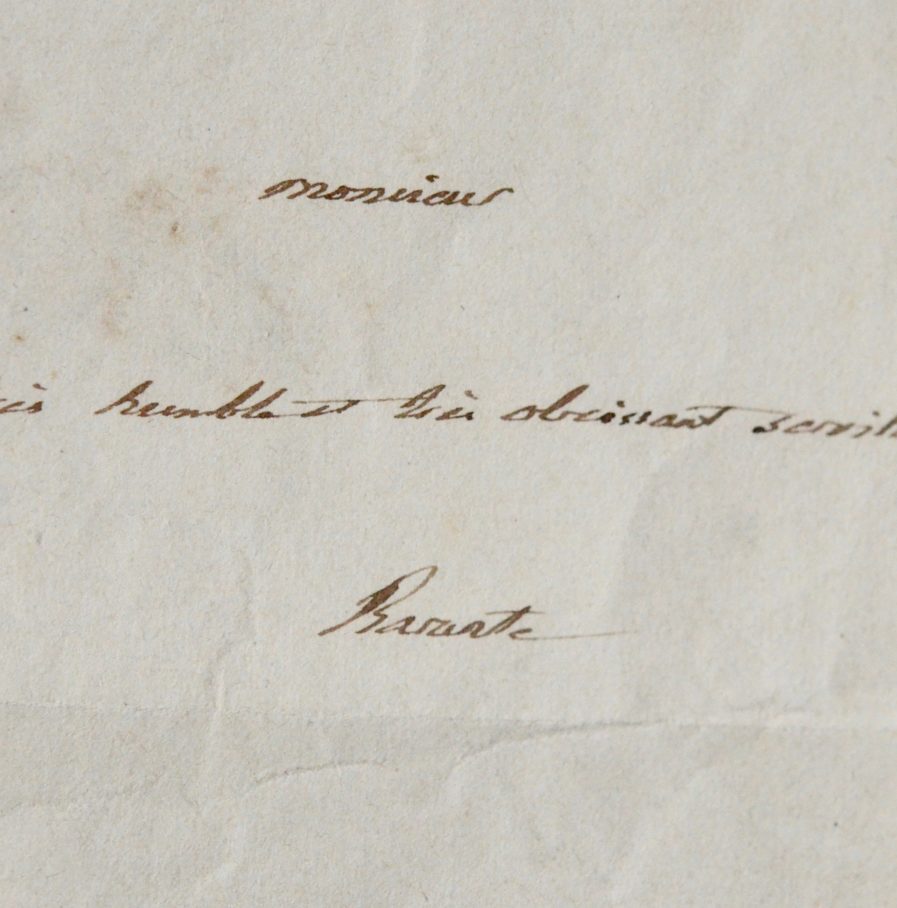 monsieur
très humble et très obeissant servit
Barante